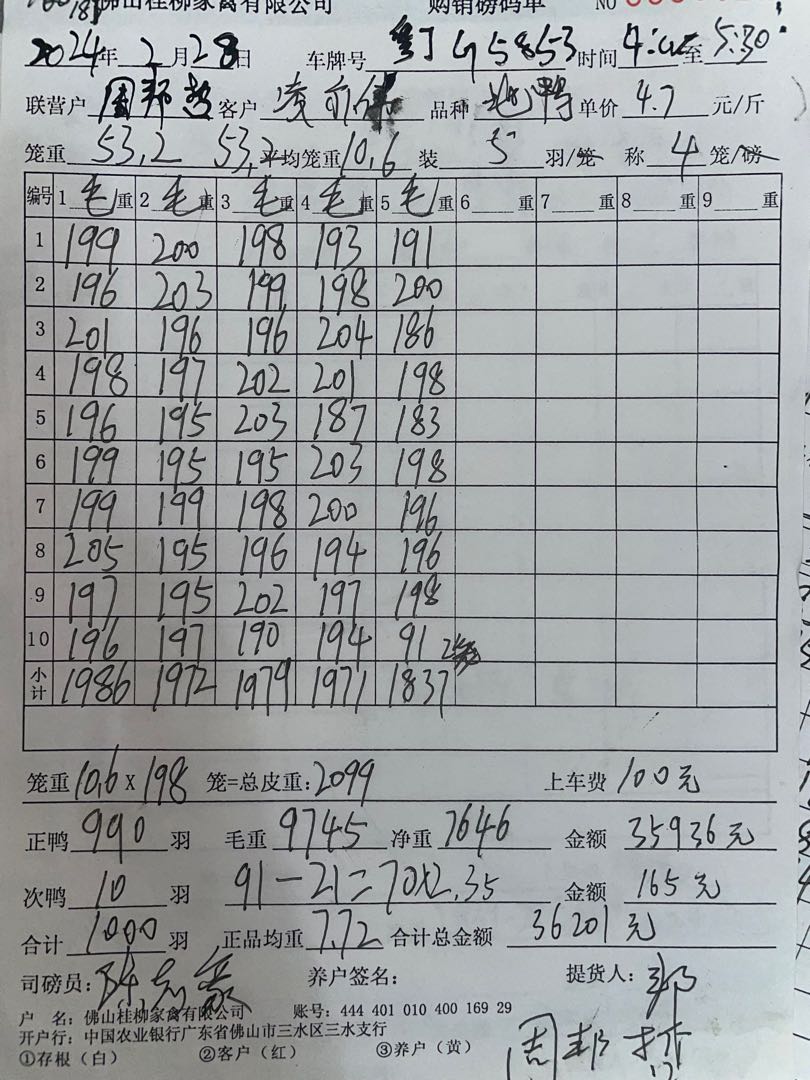 佛山桂柳家禽有限公司 购销磅码单 NO
2024年2月28日 车牌号 粤J G5853 时间 至5:30
联营户 周邦 客户 凌 品种 单价 4.7 元/斤
笼重 53.2 53.2 平均笼重 10.6 装 5 羽/笼 称 4 笼/磅
编号 1 毛 重 2 毛 重 3 毛 重 4 毛 重 5 毛 重 6 重 7 重 8 重 9 重
1 199 200 198 193 191
2 196 203 199 198 200
3 201 196 196 204 186
4 198 197 202 201 198
5 196 195 203 187 183
6 199 195 195 203 198
7 199 199 198 200 196
8 205 195 196 194 196
9 197 195 202 197 198
10 196 197 190 194 91
小计 1986 1972 1979 1971 1837
笼重 10.6 x 198 笼=总皮重: 2099 上车费 100元
正鸭 990 羽 毛重 9745 净重 7646 金额 35936 元
次鸭 10 羽 91-21=70x2.35 金额 165 元
合计 1000 羽 正品均重 7.72 合计总金额 36201 元
司磅员: 养户签名: 提货人:
户 名: 佛山桂柳家禽有限公司 账号: 444 401 010 400 169 29
开户行: 中国农业银行广东省佛山市三水区三水支行
①存根(白) ②客户(红) ③养户(黄) 周邦